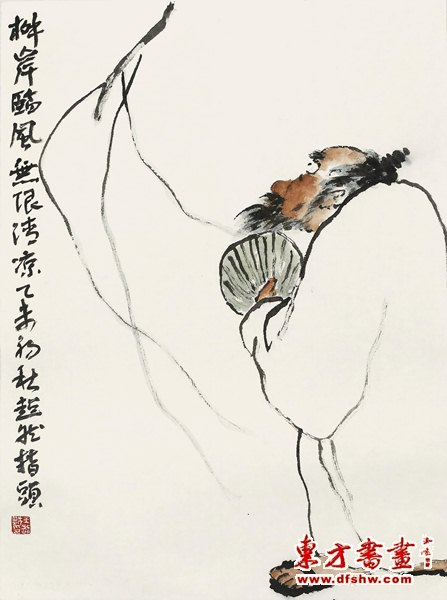 柳岸臨風無限清凉乙未初秋超然指頭
東方書畫
www.dfshw.com